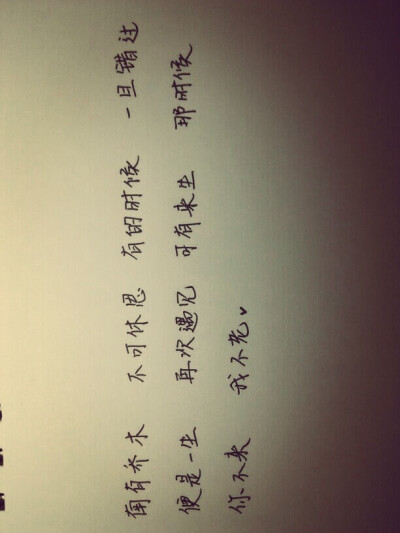 南有乔木 不可休思 有的时候 一旦错过
便是一生 再次遇见 可有来生 那时候
你不来 我不死